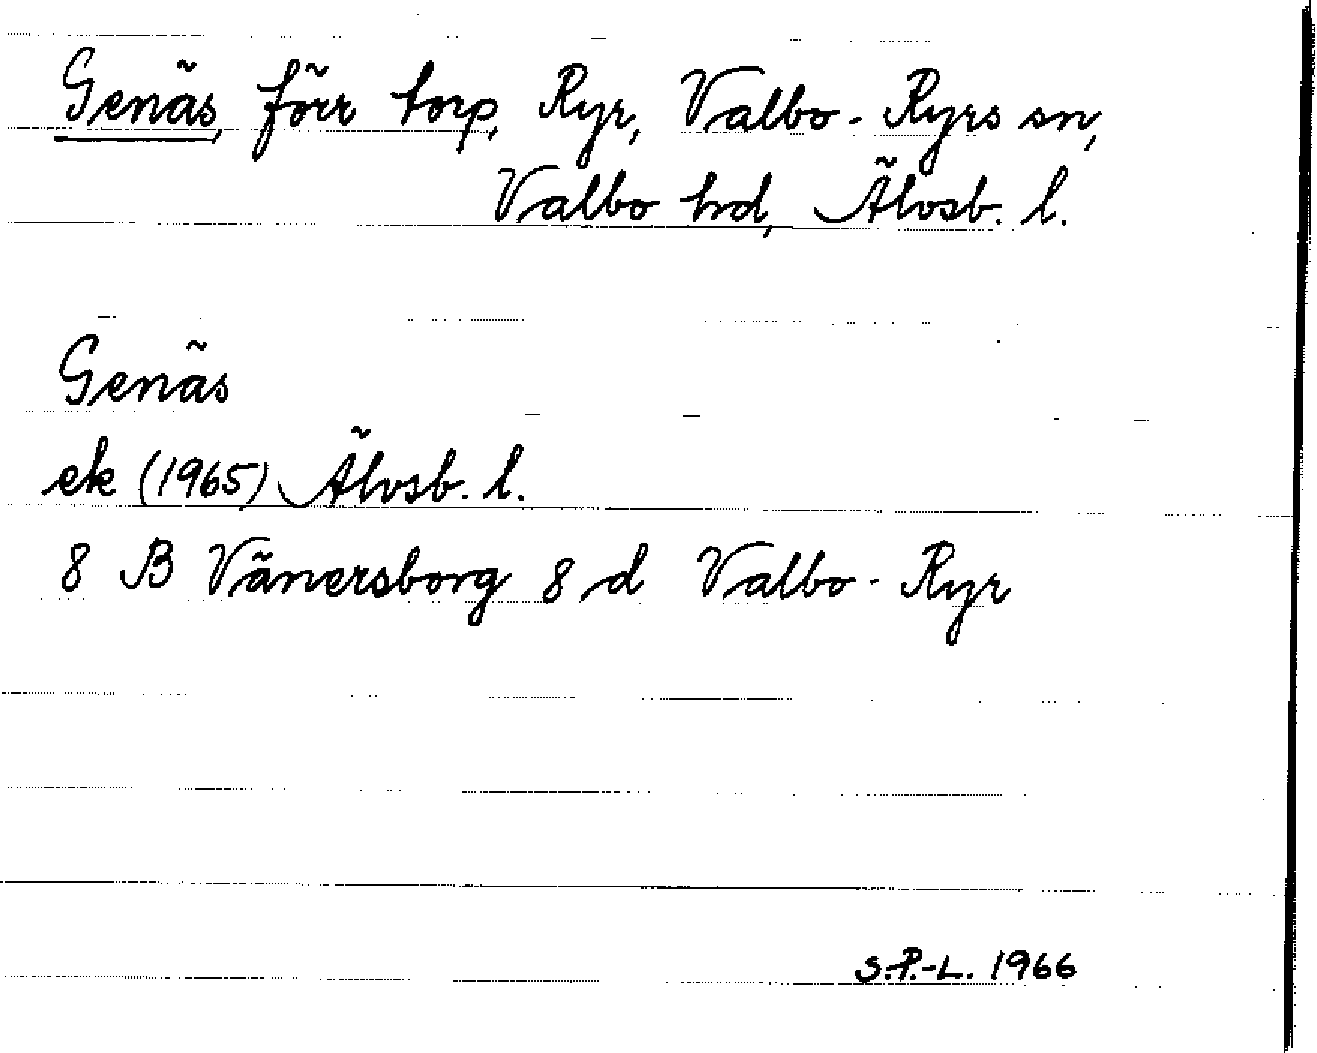 Genäs, förr torp, Ryr, Valbo-Ryrs sn,
Valbo hd, Älvsb. l.
Genäs
ek (1965) Älvsb. l.
8 B Vänersborg 8 d Valbo-Ryr
S.-P.-L. 1966